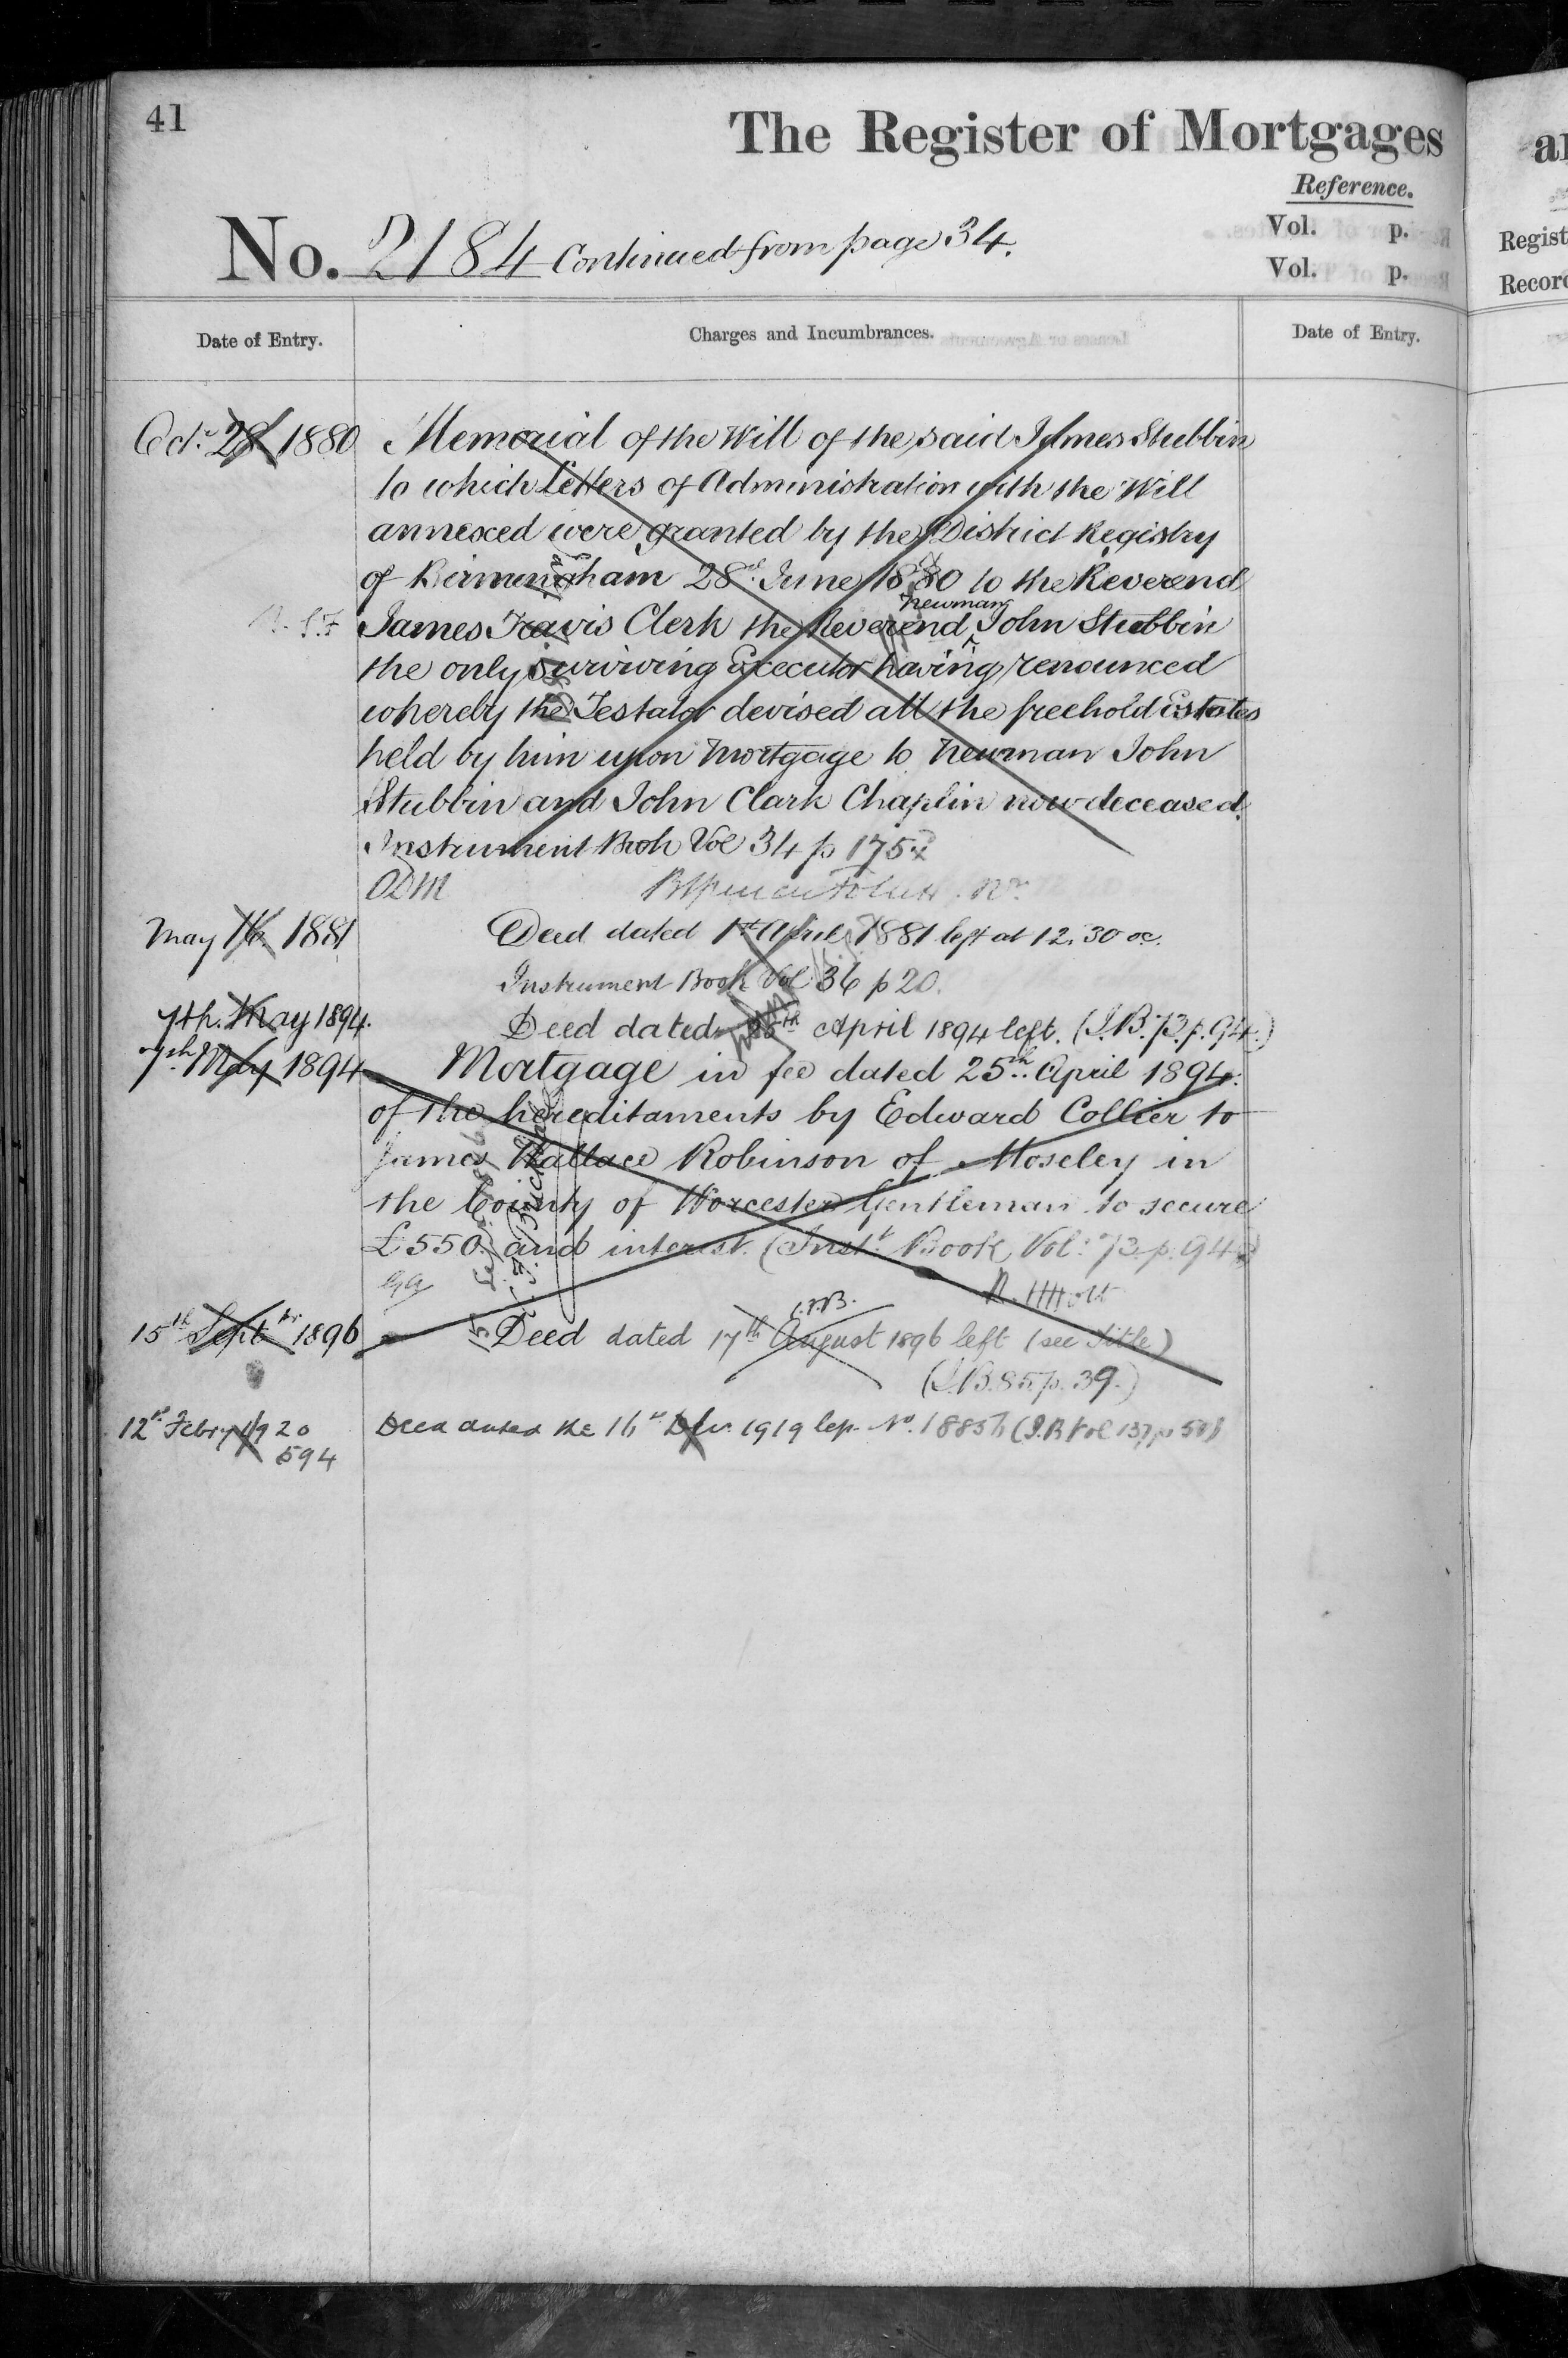 41
The Register of Mortgages
Reference.
No. 2184 Continued from page 34.
Vol. p.
Vol. p.
Regist
Record
Date of Entry.
Charges and Incumbrances.
Date of Entry.
Octr 28 1880
Memorial of the Will of the said James Stubbin
to which Letters of Administration with the Will
annexed were granted by the District Registry
of Birmingham 28th June 1880 to the Reverend
James Travis Clerk the Reverend Newman John Stubbin
the only surviving Executor having renounced
whereby the Testator devised all the freehold Estates
held by him upon Mortgage to Newman John
Stubbin and John Clark Chaplin now deceased.
Instrument Book Vol 34 p 175
ODM
May 16. 1881
Deed dated 1st April 1881 left at 12.30 oc.
Instrument Book Vol 36 p 20.
7th. May 1894.
Deed dated 25th April 1894 left. (I.B. 73. p. 94.)
7th May 1894
Mortgage in fee dated 25th April 1894.
of the hereditaments by Edward Collier to
James Wallace Robinson of Moseley in
the County of Worcester Gentleman to secure
£550. and interest. (Instt Book Vol: 73. p. 94.)
15th Septr 1896
Deed dated 17th August 1896 left (see Title)
(I.B. 85. p. 39.)
12th Febry 1920
Deed dated the 16th 1919 No. (I.B Vol 137 p
594